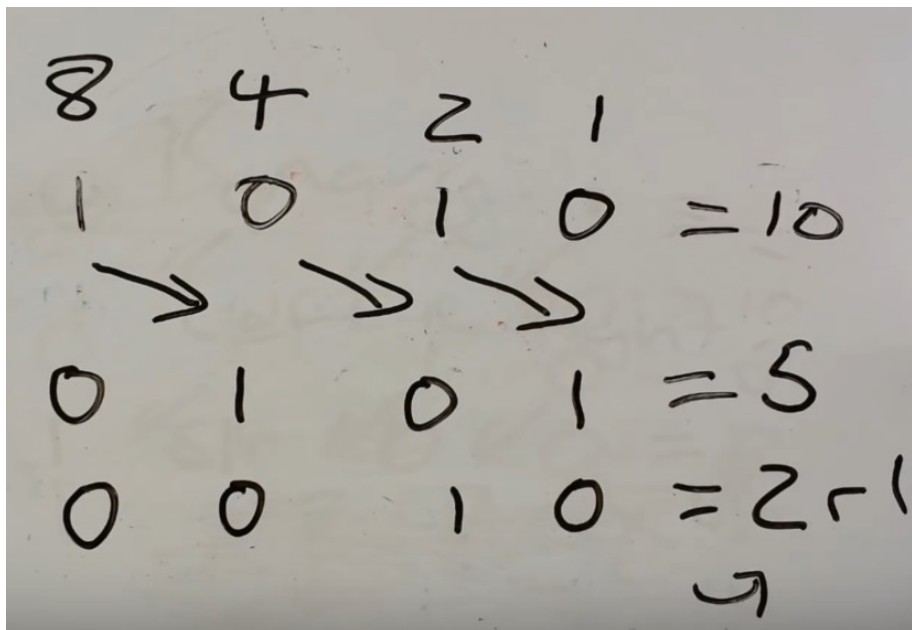 8 4 2 1
1 0 1 0 = 10
0 1 0 1 = 5
0 0 1 0 = 2 r 1